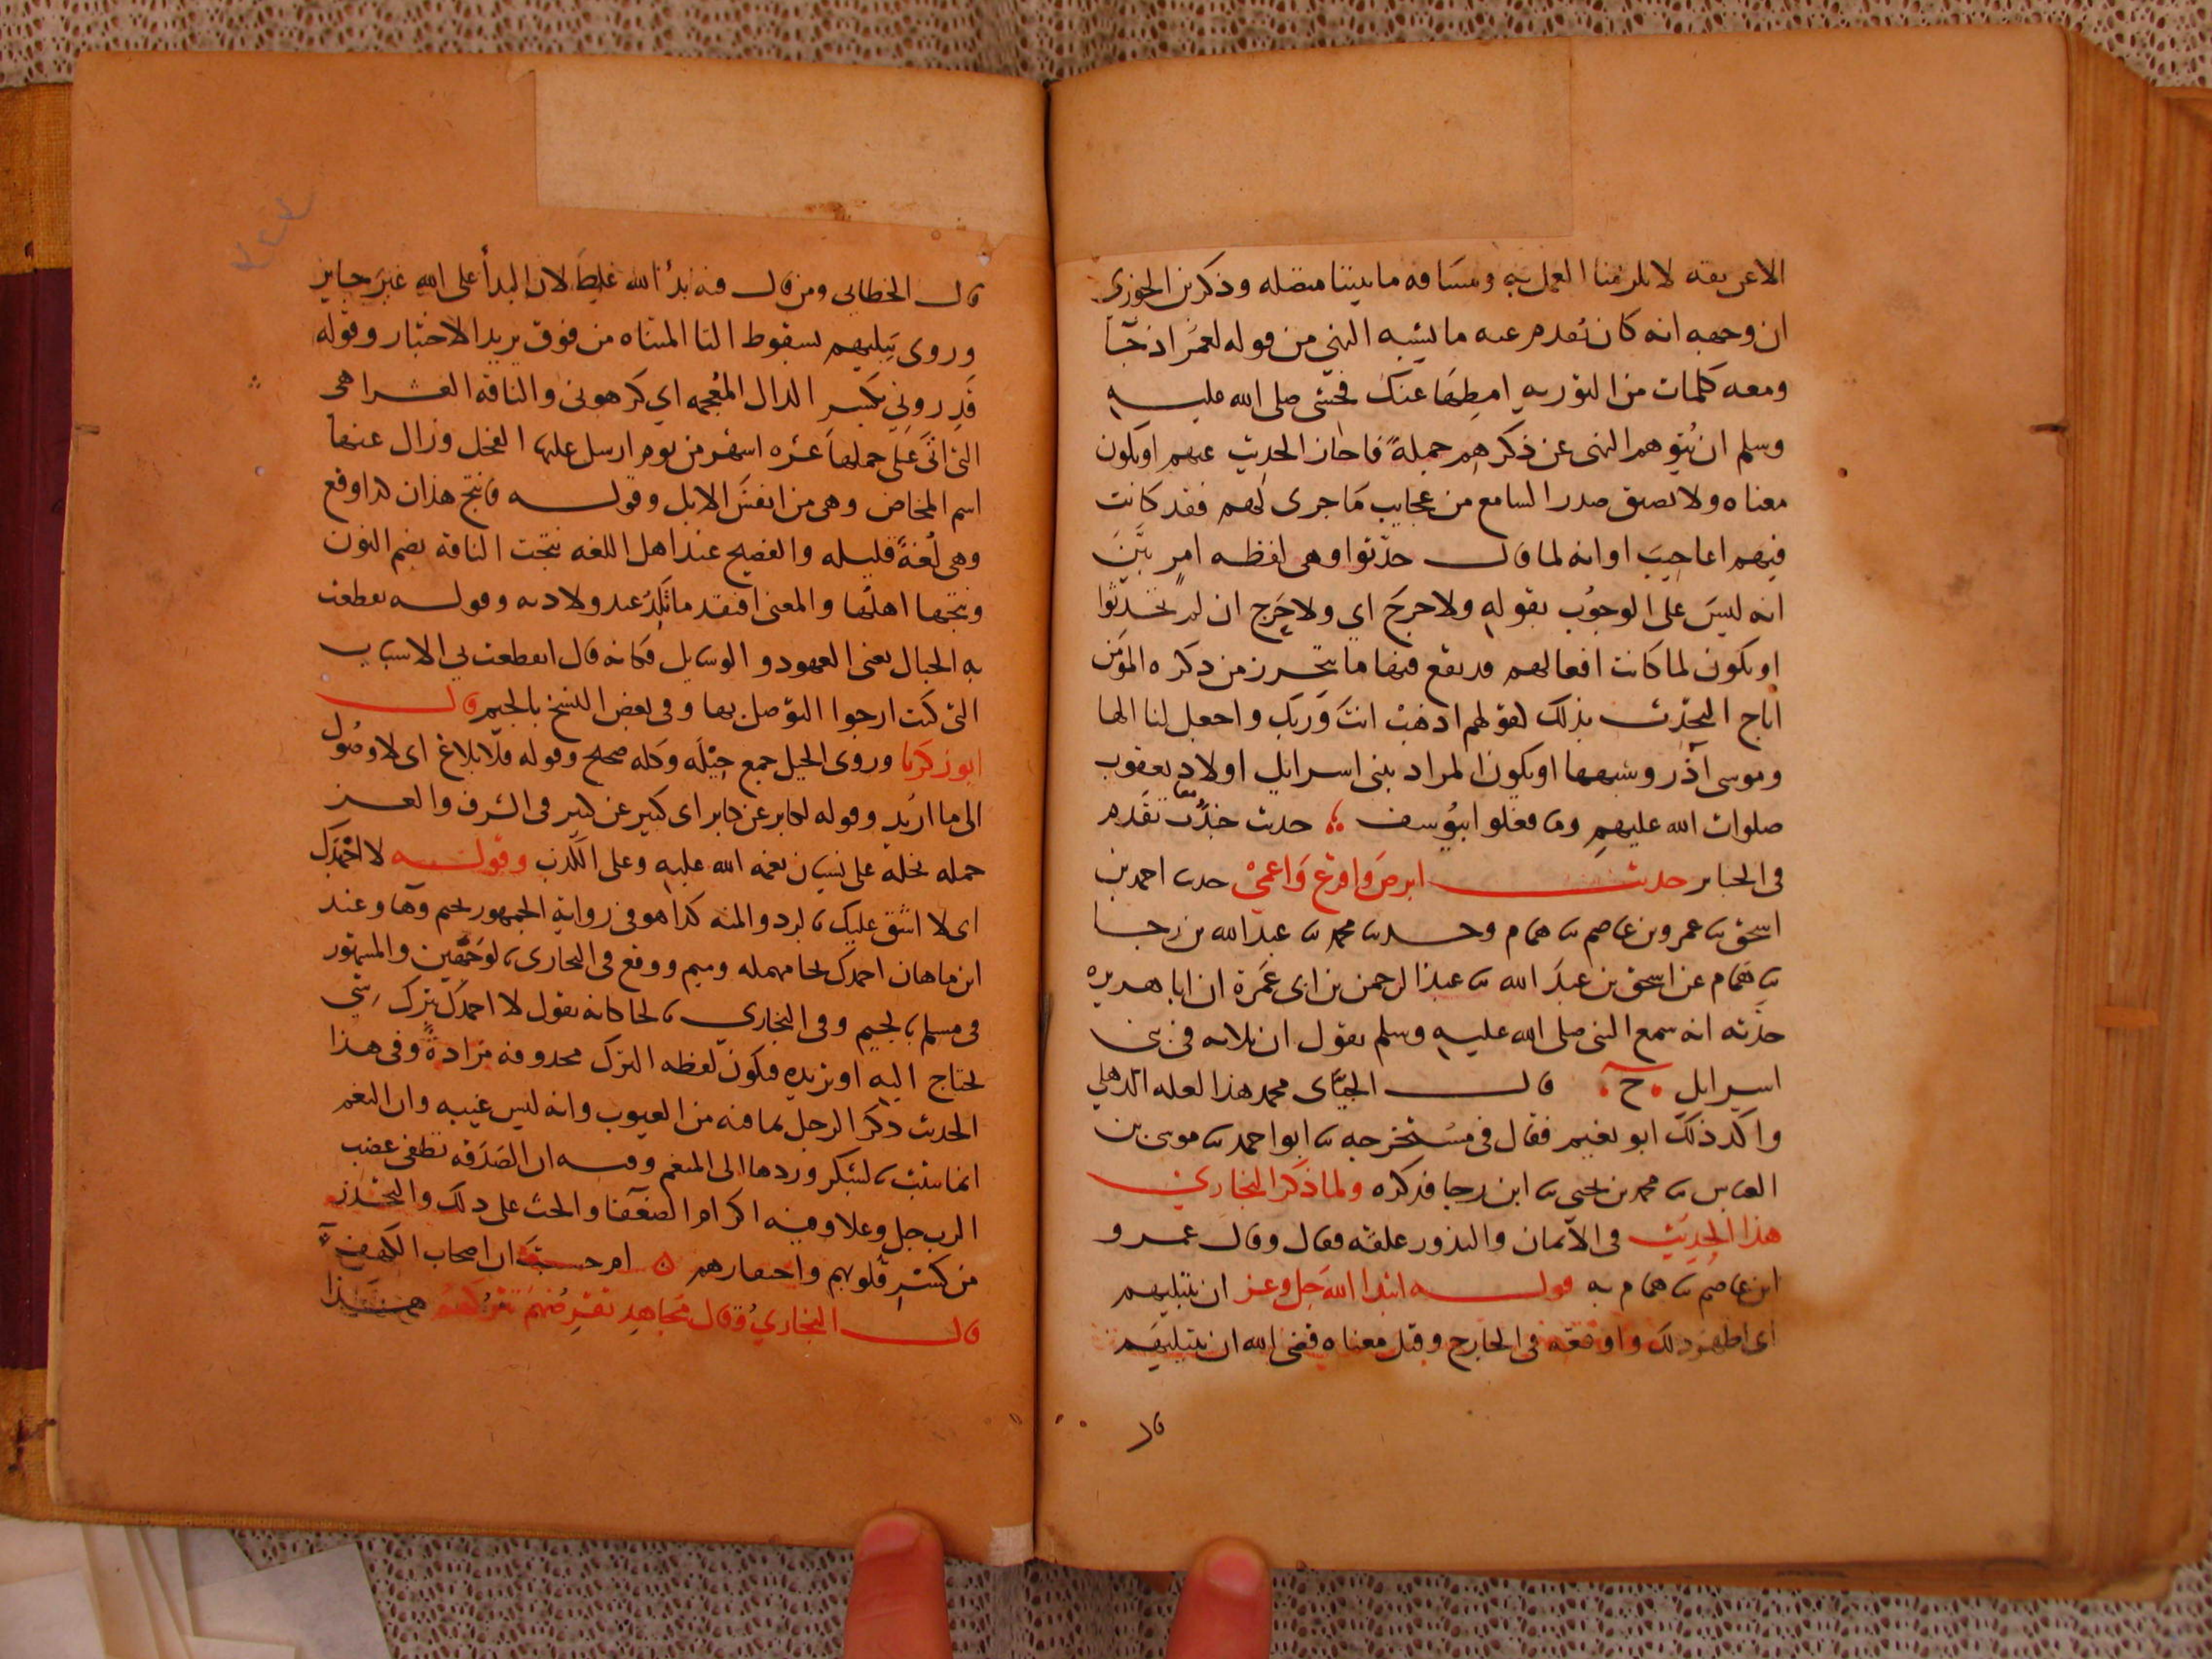 الاعن ثقه لا يلزمنا العمل به ومسافه ما بيننا متصله وذكر بن الجوزي
ان وجهه انه كان تقدم عنه ما يشبه النهي من قوله لعمر اذ جا
ومعه كلمات من التوريه امطها عنك فخشى صلى الله عليه
وسلم ان يتوهم النهى عن ذكرهم جملة فاجاز الحديث عنهم او يكون
معناه ولا يضيق صدر السامع من عجايب ما جرى لهم فقد كانت
فيهم اعاجيب او انه لما قال حدثوا وهى لفظه امر بين
انه ليس على الوجوب بقوله ولا حرج اي ولا حرج ان لم تحدثوا
او يكون لما كانت افعالهم قد يقع فيها ما يتحرز من ذكره المؤمن
اباح التحدث بذلك كقولهم اذهب انت وربك واجعل لنا الها
وموسى آدر وشبهها او يكون المراد ببنى اسرايل اولاد يعقوب
صلوات الله عليهم وما فعلوا بيوسف حديث جندب تقدم
فى الجنايز حديث ابرص واقرع واعمى حدثنا احمد بن
اسحق ثنا عمرو بن عاصم ثنا همام وحدثنا محمد ثنا عبد الله بن رجا
ثنا همام عن اسحق بن عبد الله ثنا عبد الرحمن بن ابى عمرة ان ابا هريره
حدثه انه سمع النبى صلى الله عليه وسلم يقول ان ثلاثه فى بنى
اسرايل ح قال الجياى محمد هذا لعله الذهلي
واكد ذلك ابو نعيم فقال فى مستخرجه ثنا ابو احمد ثنا موسى بن
العباس ثنا محمد بن يحيى ثنا ابن رجا فذكره ولما ذكر البخاري
هذا الحديث فى الايمان والنذور علقه فقال وقال عمرو
ابن عاصم ثنا همام به قوله ابتدا الله جل وعز ان يبتليهم
اى اظهر ذلك واوقعه فى الخارج وقيل معناه قضى الله ان يبتليهم
قال
قال الخطابي ومن قال فيه بدأ الله غلط لان البدأ على الله غير جايز
وروى يبليهم بسقوط التا المثناه من فوق يريد الاختبار وقوله
قذروني بكسر الدال المعجمه اي كرهونى والناقه العشرا هى
التى اتى على حملها عشره اشهر من يوم ارسل عليها الفحل وزال عنها
اسم المخاض وهى من انفس الابل وقوله فانتج هذان كذا وقع
وهى لغة قليله والفصيح عند اهل اللغه نتجت الناقه بضم النون
ونتجها اهلها والمعنى افتقد ما تلد عند ولادته وقوله تقطعت
به الحبال يعنى العهود والوسايل فكانه قال انقطعت بي الاسباب
التى كنت ارجوا التوصل بها وفى بعض النسخ بالجيم قال
ابو زكريا وروى الحيل جمع حيلة وكله صحيح وقوله فلا بلاغ اى لا وصول
الى ما اريد وقوله لكابر عن كابر اى كبير عن كبير فى الشرف والعز
حمله بخله على نسيان نعمه الله عليه وعلى الكذب وقوله لا احمدك
اى لا اشق عليك بالرد والمنه كذا هو فى رواية الجمهور بجيم وها وعند
ابن ماهان احمدك بحا مهمله وميم ووقع فى البخارى بالوجهين والمشهور
فى مسلم بالجيم وفى البخاري بالحا كانه يقول لا احمدك بترك شى
تحتاج اليه او تريده فيكون لفظه الترك محذوفه مرادة وفى هذا
الحديث ذكر الرجل بما فيه من العيوب وانه ليس غيبه وان النعم
انما تثبت بالشكر وردها الى المنعم وفيه ان الصدقه تطفى غضب
الرب جل وعلا وفيه اكرام الضعفا والحث على ذلك والتحذير
من كسر قلوبهم واحتقارهم ام حسبت ان اصحاب الكهف
قال البخاري وقال مجاهد تقرضهم تتركهم هذا